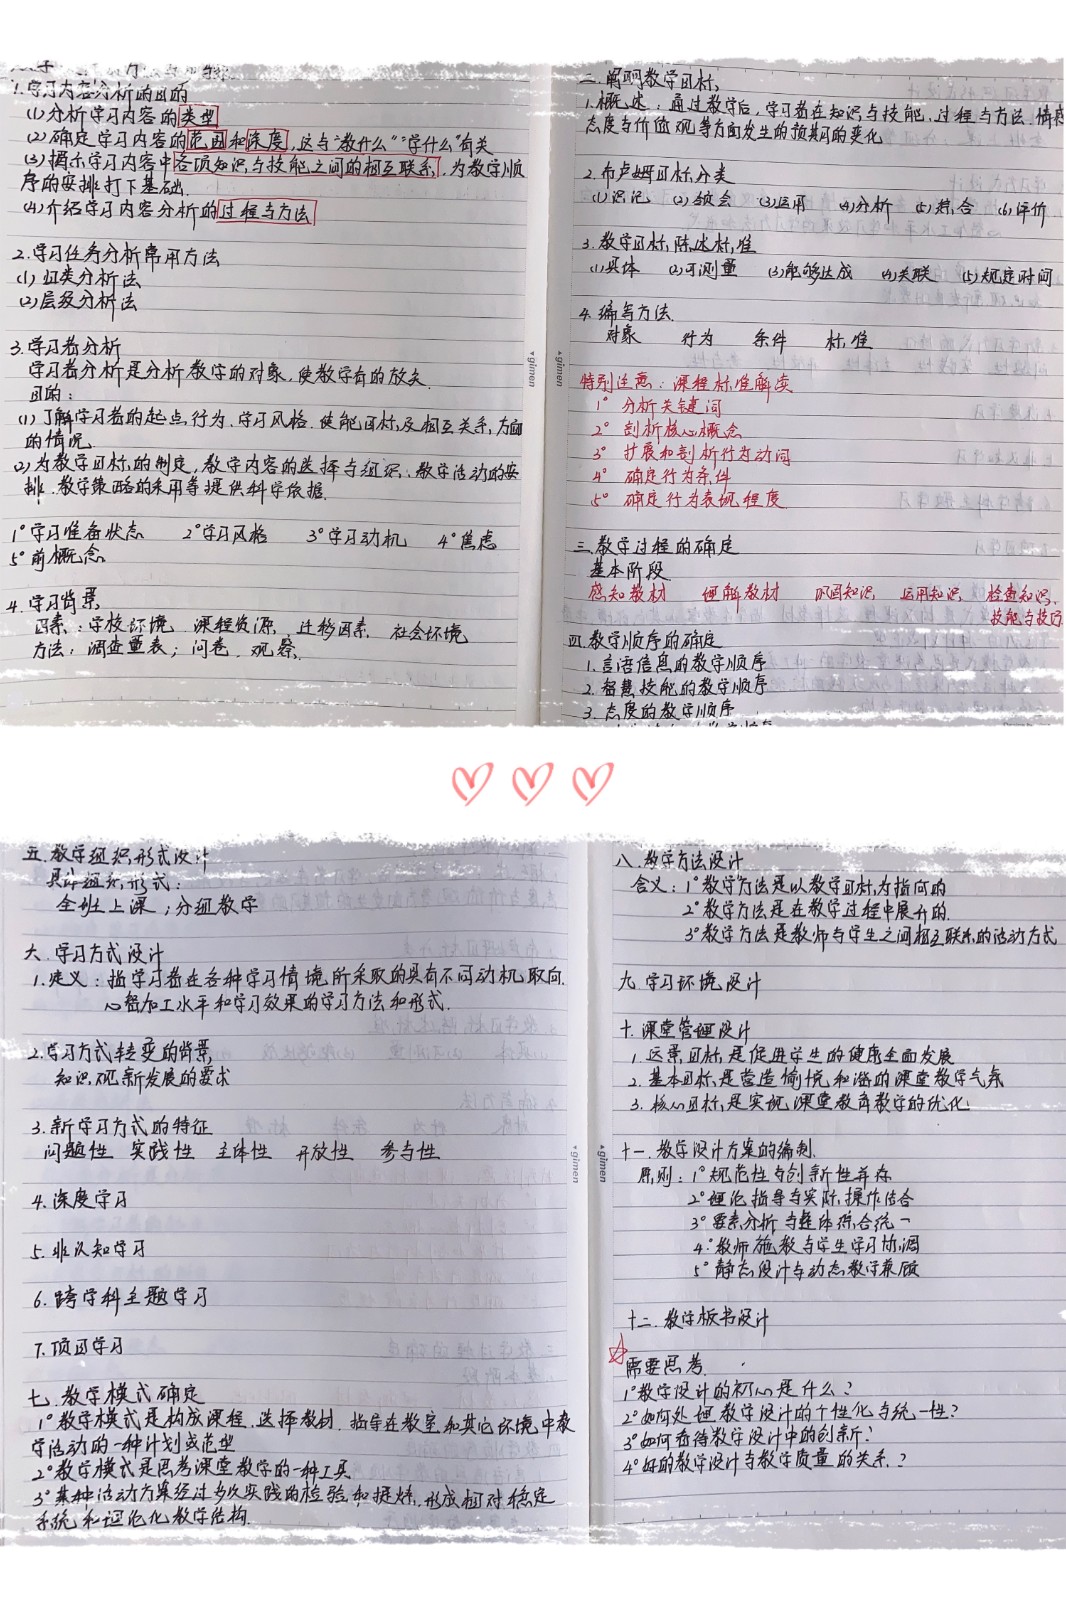 1.学习内容分析的目的
(1)分析学习内容的类型
(2)确定学习内容的范围和深度,这与"教什么""学什么"有关
(3)揭示学习内容中各项知识与技能之间的相互联系,为教学顺
序的安排打下基础.
(4)介绍学习内容分析的过程与方法
2.学习任务分析常用方法
(1)归类分析法
(2)层级分析法
3.学习者分析
学习者分析是分析教学的对象,使教学有的放矢.
目的:
(1)了解学习者的起点,行为、学习风格.使能目标,及相互关系,方面
的情况.
(2)为教学目标的制定,教学内容的选择与组织、教学活动的安
排、教学策略的采用等提供科学依据.
1°学习准备状态 2°学习风格 3°学习动机 4°焦虑
5°前概念
4.学习背景
因素:学校环境 课程资源 迁移因素 社会环境
方法:调查量表;问卷.观察.
二.阐明教学目标
1.概述:通过教学后,学习者在知识与技能、过程与方法、情感
态度与价值观等方面发生的预期的变化
2.布卢姆目标分类
(1)识记 (2)领会 (3)运用 (4)分析 (5)综合 (6)评价
3.教学目标陈述标准
(1)具体 (2)可测量 (3)能够达成 (4)关联 (5)规定时间
4.编写方法
对象 行为 条件 标准
特别注意:课程标准解读
1°分析关键词
2°剖析核心概念
3°扩展和剖析行为动词
4°确定行为条件
5°确定行为表现程度
三.教学过程的确定
基本阶段
感知教材 理解教材 巩固知识 运用知识 检查知识、
技能与技巧
四.教学顺序的确定
1.言语信息的教学顺序
2.智慧技能的教学顺序
3.态度的教学顺序
gimen
gimen
五.教学组织形式设计
具体组织形式:
全班上课;分组教学
六.学习方式设计
1.定义:指学习者在各种学习情境所采取的具有不同动机取向
心智加工水平和学习效果的学习方法和形式.
2.学习方式转变的背景
知识观新发展的要求
3.新学习方式的特征
问题性 实践性 主体性 开放性 参与性
4.深度学习
5.非认知学习
6.跨学科主题学习
7.项目学习
七.教学模式确定
1°教学模式是构成课程、选择教材、指导在教室和其它环境中教
学活动的一种计划或范型
2°教学模式是思考课堂教学的一种工具
3°某种活动方案经过多次实践的检验和提炼,形成相对稳定
系统和理论化教学结构.
八.教学方法设计
含义:1°教学方法是以教学目标为指向的
2°教学方法是在教学过程中展开的.
3°教学方法是教师与学生之间相互联系的活动方式
九.学习环境设计
十.课堂管理设计
1.远景目标是促进学生的健康全面发展
2.基本目标是营造愉悦和谐的课堂教学气氛
3.核心目标是实现课堂教育教学的优化
十一.教学设计方案的编制.
原则:1°规范性与创新性并存
2°理论指导与实际操作结合
3°要素分析与整体综合统一
4°教师施教与学生学习协调
5°静态设计与动态教学兼顾
十二.教学板书设计
需要思考.
1°教学设计的初心是什么?
2°如何处理教学设计的个性化与统一性?
3°如何看待教学设计中的创新?
4°好的教学设计与教学质量的关系?
gimen
gimen